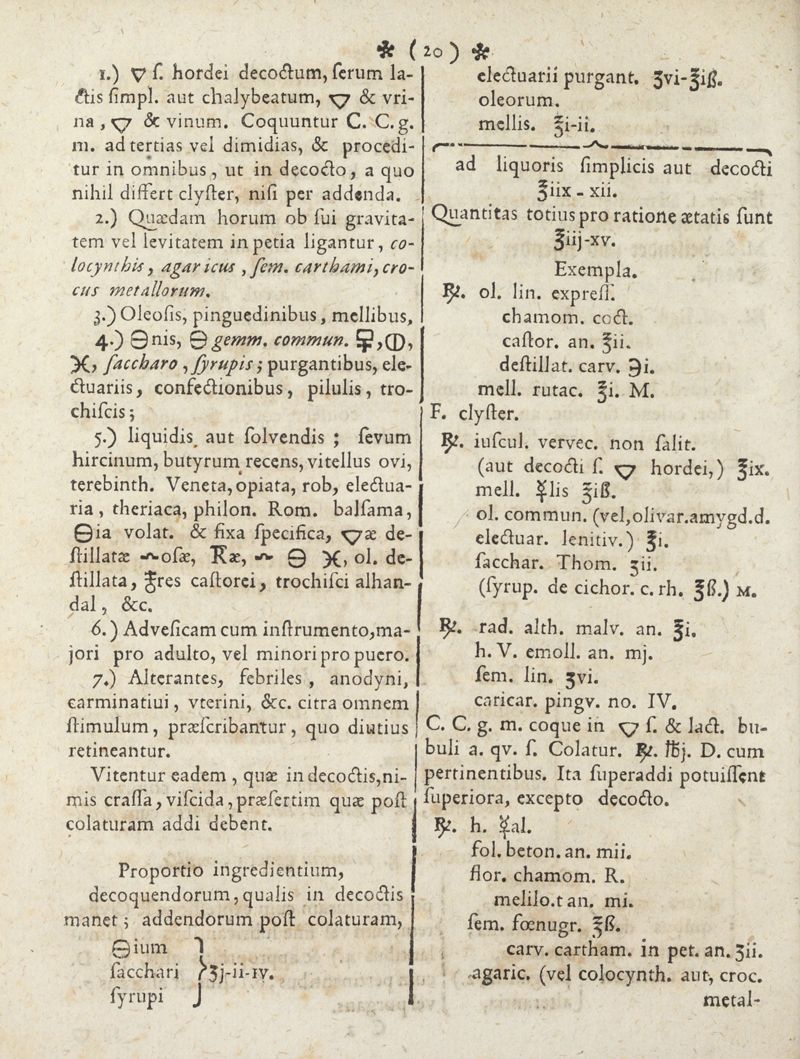 * (20) *
1.) 🜄 ſ. hordei decoctum, ſerum la-
ctis ſimpl. aut chalybeatum, 🜄 & vri-
na, 🜄 & vinum. Coquuntur C. C. g.
m. ad tertias vel dimidias, & procedi-
tur in omnibus, ut in decocto, a quo
nihil differt clyſter, niſi per addenda.
2.) Quædam horum ob ſui gravita-
tem vel levitatem in petia ligantur, co-
locynthis, agaricus, ſem. carthami, cro-
cus metallorum.
3.) Oleoſis, pinguedinibus, mellibus,
4.) 🜔nis, 🜔 gemm. commun. 🜿, 🜕,
🞡, ſaccharo, ſyrupis; purgantibus, ele-
ctuariis, confectionibus, pilulis, tro-
chiſcis;
5.) liquidis aut ſolvendis; ſevum
hircinum, butyrum recens, vitellus ovi,
terebinth. Veneta, opiata, rob, electua-
ria, theriaca, philon. Rom. balſama,
🜔ia volat. & fixa ſpecifica, 🜄æ de-
ſtillatæ oſæ, Ræ, 🜔, ol. de-
ſtillata, res caſtorei, trochiſci alhan-
dal, &c.
6.) Ad veſicam cum inſtrumento, ma-
jori pro adulto, vel minori pro puero.
7.) Alterantes, febriles, anodyni,
carminatiui, vterini, &c. citra omnem
ſtimulum, præſcribantur, quo diutius
retineantur.
Vitentur eadem, quæ in decoctis, ni-
mis craſſa, viſcida, præſertim quæ poſt
colaturam addi debent.
Proportio ingredientium,
decoquendorum, qualis in decoctis
manet; addendorum poſt colaturam,
🜔ium
ſacchari } ʒj-ii-iv.
ſyrupi
electuarii purgant. ʒvi-℥iß.
oleorum.
mellis. ℥i-ii.
ad liquoris ſimplicis aut decocti
℥iix - xii.
Quantitas totius pro ratione ætatis ſunt
℥iij-xv.
Exempla.
℞. ol. lin. expreſſ.
chamom. coct.
caſtor. an. ℥ii.
deſtillat. carv. ℈i.
mell. rutac. ℥i. M.
F. clyſter.
℞. iuſcul. vervec. non ſalit.
(aut decocti ſ. 🜄 hordei,) ℥ix.
mell. ☿lis ℥iß.
ol. commun. (vel, olivar. amygd. d.
electuar. lenitiv.) ℥i.
ſacchar. Thom. ʒii.
(ſyrup. de cichor. c. rh. ℥ß.) M.
℞. rad. alth. malv. an. ℥i.
h. V. emoll. an. mj.
ſem. lin. ʒvi.
caricar. pingv. no. IV.
C. C. g. m. coque in 🜄 ſ. & lact. bu-
buli a. qv. ſ. Colatur. ℞. ℔j. D. cum
pertinentibus. Ita ſuperaddi potuiſſent
ſuperiora, excepto decocto.
℞. h. ☿al.
fol. beton. an. mii.
flor. chamom. R.
melilo.t an. mi.
ſem. fœnugr. ℥ß.
carv. cartham. in pet. an. ʒii.
agaric. (vel colocynth. aut, croc.
metal-